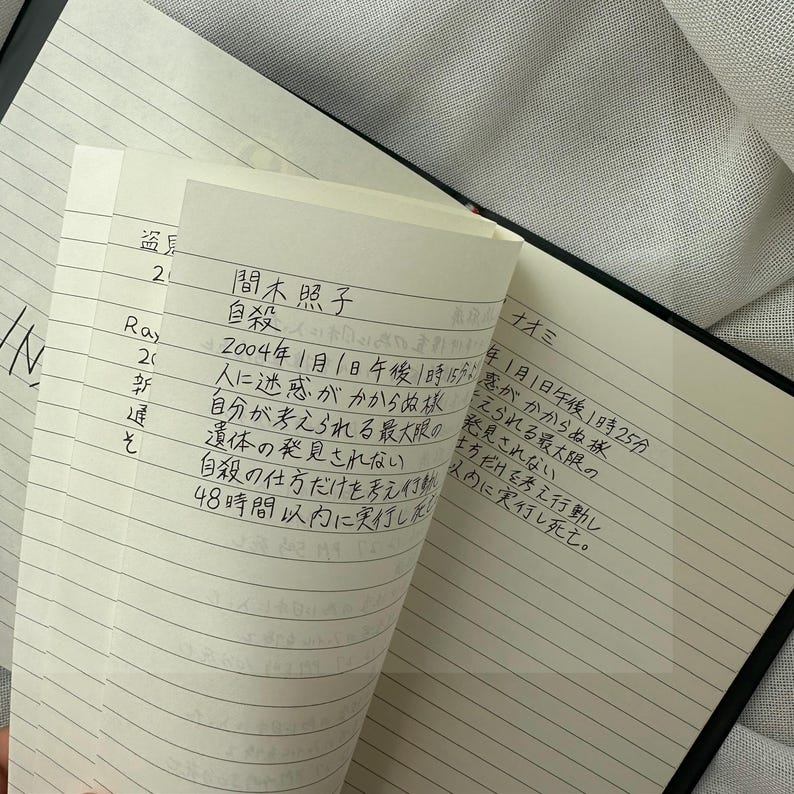 盗見
20
Ray
20
新
通
そ
IN
間木照子
自殺
2004年1月1日午後1時15分よ
人に迷惑がかからぬ様
自分が考えられる最大限の
遺体の発見されない
自殺の仕方だけを考え行動し
48時間以内に実行し死亡
ナオミ
年1月1日午後1時25分
惑がかからぬ様
えられる最大限の
発見されない
仕方だけを考え行動し
以内に実行し死亡。